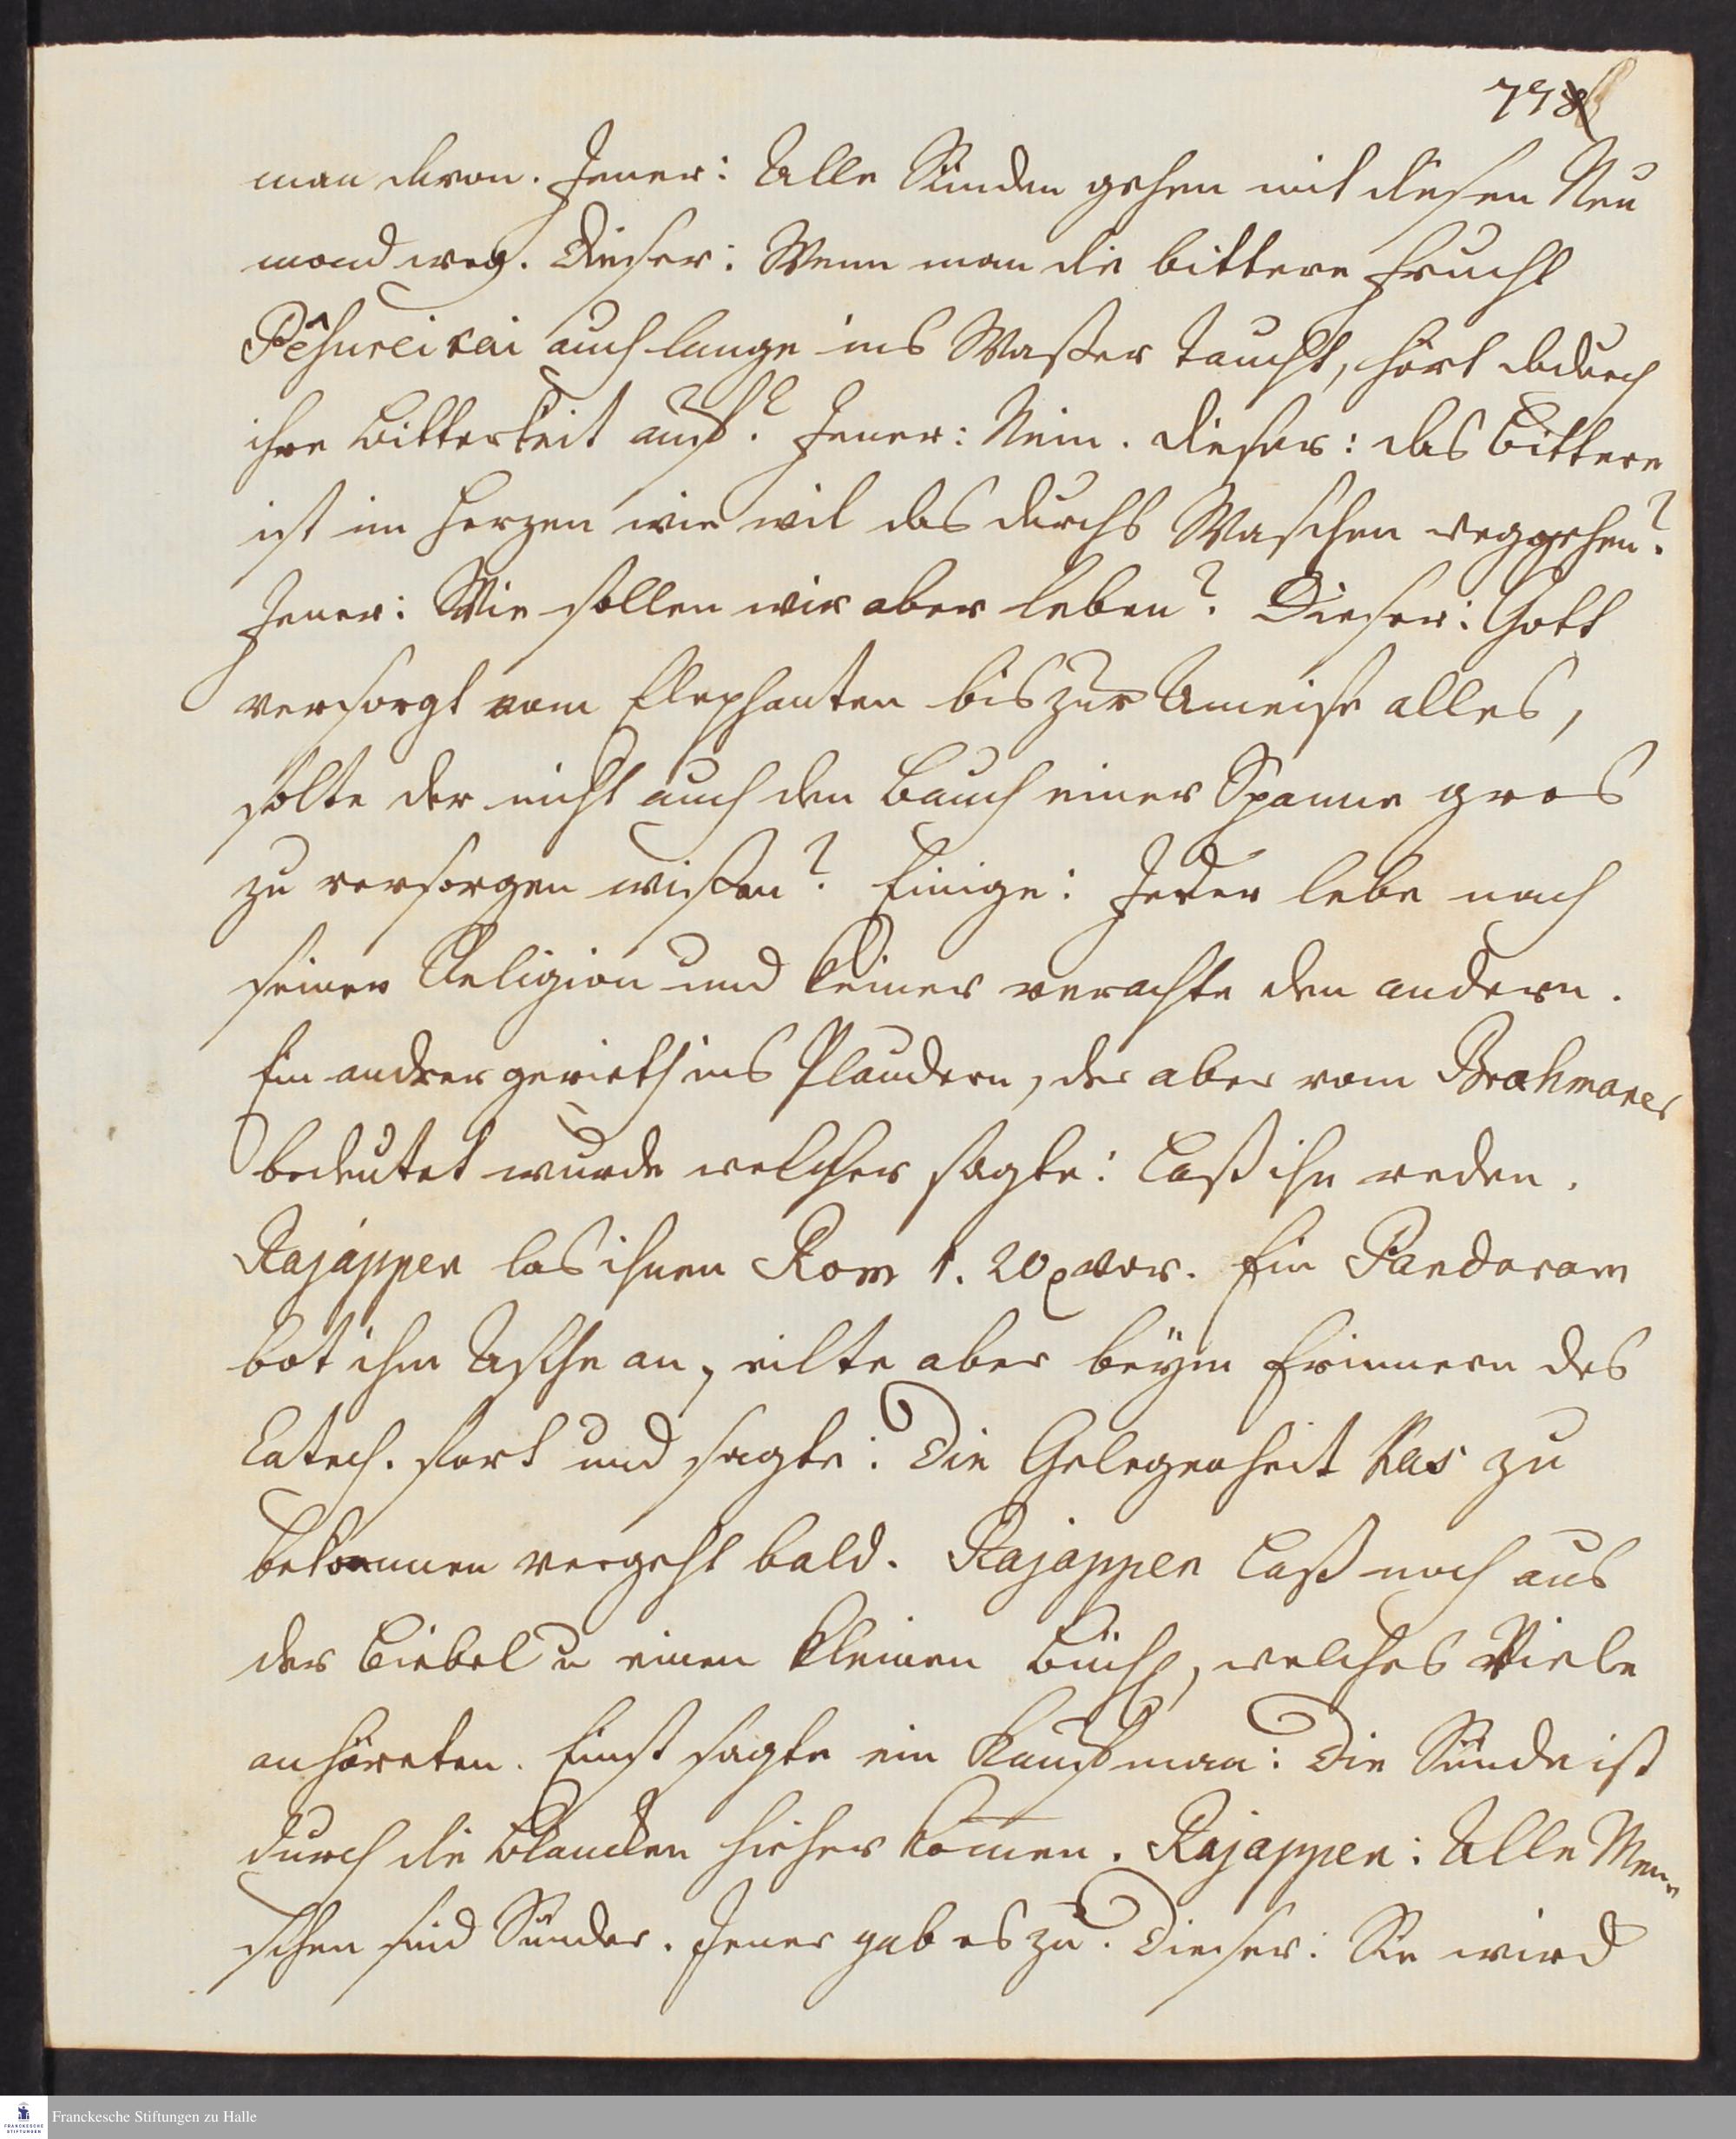 man davon. Jener: Alle Sünden gehen mit diesen Neu
mond weg. Dieser: Wenn man die bittere Frucht
Pêhureikai auch lange ins Waßer taucht, hört dadurch
ihre Bitterkeit auf? Jener: Nein. Dieser: das Bittere
ist im Herzen wie wil das durchs Waschen weggehen?
Jener: Wie sollen wir aber leben? Dieser: Gott
versorgt vom Elephanten bis zur Ameise alles,
solte der nicht auch den Bauch einer Spanne gros
zu versorgen wißen? Einige: Jeder lebe nach
seiner Religion und keiner verachte den andern.
Ein andrer gerieth ins Plaudern, der aber vom Brahmaner
bedeutet wurde welcher sagte: Laß ihn reden.
Rajappen las ihnen Rom 1. 20 vor. Ein Pandaram
bot ihm Asche an, eilte aber beÿm Erinnern des
Catech. fort und sagte: Die Gelegenheit Kas zu
bekommen vergeht bald. Rajappen laß noch aus
der Biebel u einen kleinen Büchl, welches Viele
anhöreten. Einst sagte ein Kaufman: Die Sünde ist
durch die Blancken hieher kom̄en. Rajappen: Alle Men-
schen sind Sünder. Jener gab es zu. Dieser: Sie wird
Franckesche Stiftungen zu Halle
FRANCKESCHE
STIFTUNGEN